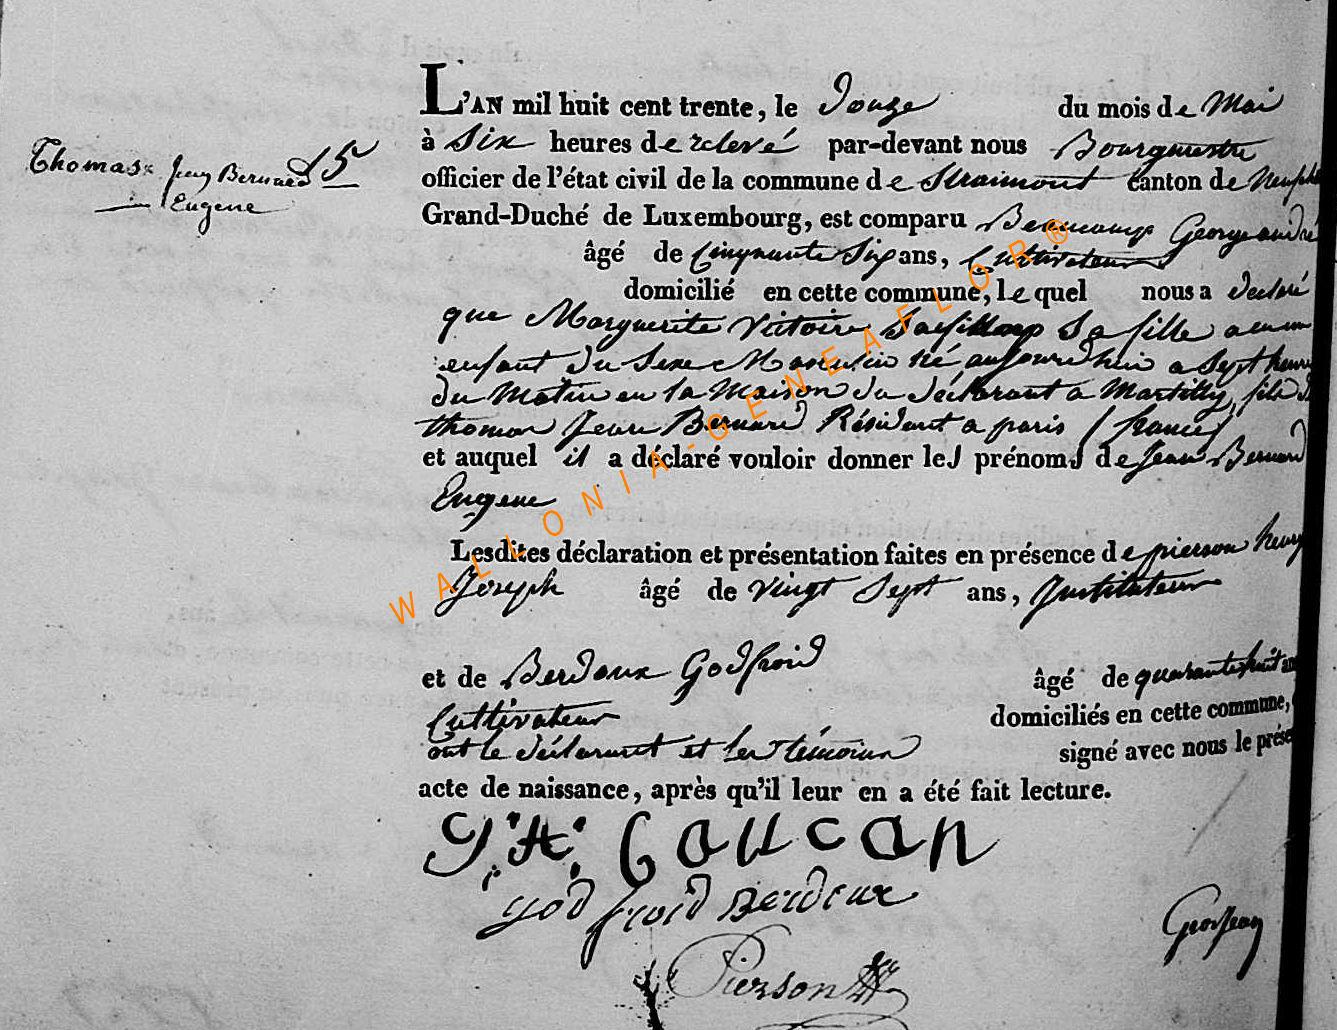 Thomas Jean Bernard 15
Eugene
L'AN mil huit cent trente, le Douze du mois de Mai
à Six heures de relevé par-devant nous Bourgmestre
officier de l'état civil de la commune de Straimont canton de
Grand-Duché de Luxembourg, est comparu George andré
âgé de Cinquante Six ans, Cultivateur
domicilié en cette commune, le quel nous a déclaré
que Marguerite Victoire Sa fille a eu un
enfant du Sexe Masculin né aujourdhui a Sept heures
du Matin en la Maison du déclarant a Martilly, fils de
thomas Jean Bernard Résident a paris (france)
et auquel il a déclaré vouloir donner les prénoms de Jean Bernard
Eugene
Lesdites déclaration et présentation faites en présence de pierson henry
Joseph âgé de vingt Sept ans, Instituteur
et de Berdoux Godfroid âgé de quarante huit ans
Cultivateur domiciliés en cette commune,
ont le déclarant et les témoins signé avec nous le présent
acte de naissance, après qu'il leur en a été fait lecture.
god froid Berdeux
Grosjean
Pierson
WALLONIA-GENEAFLOR®